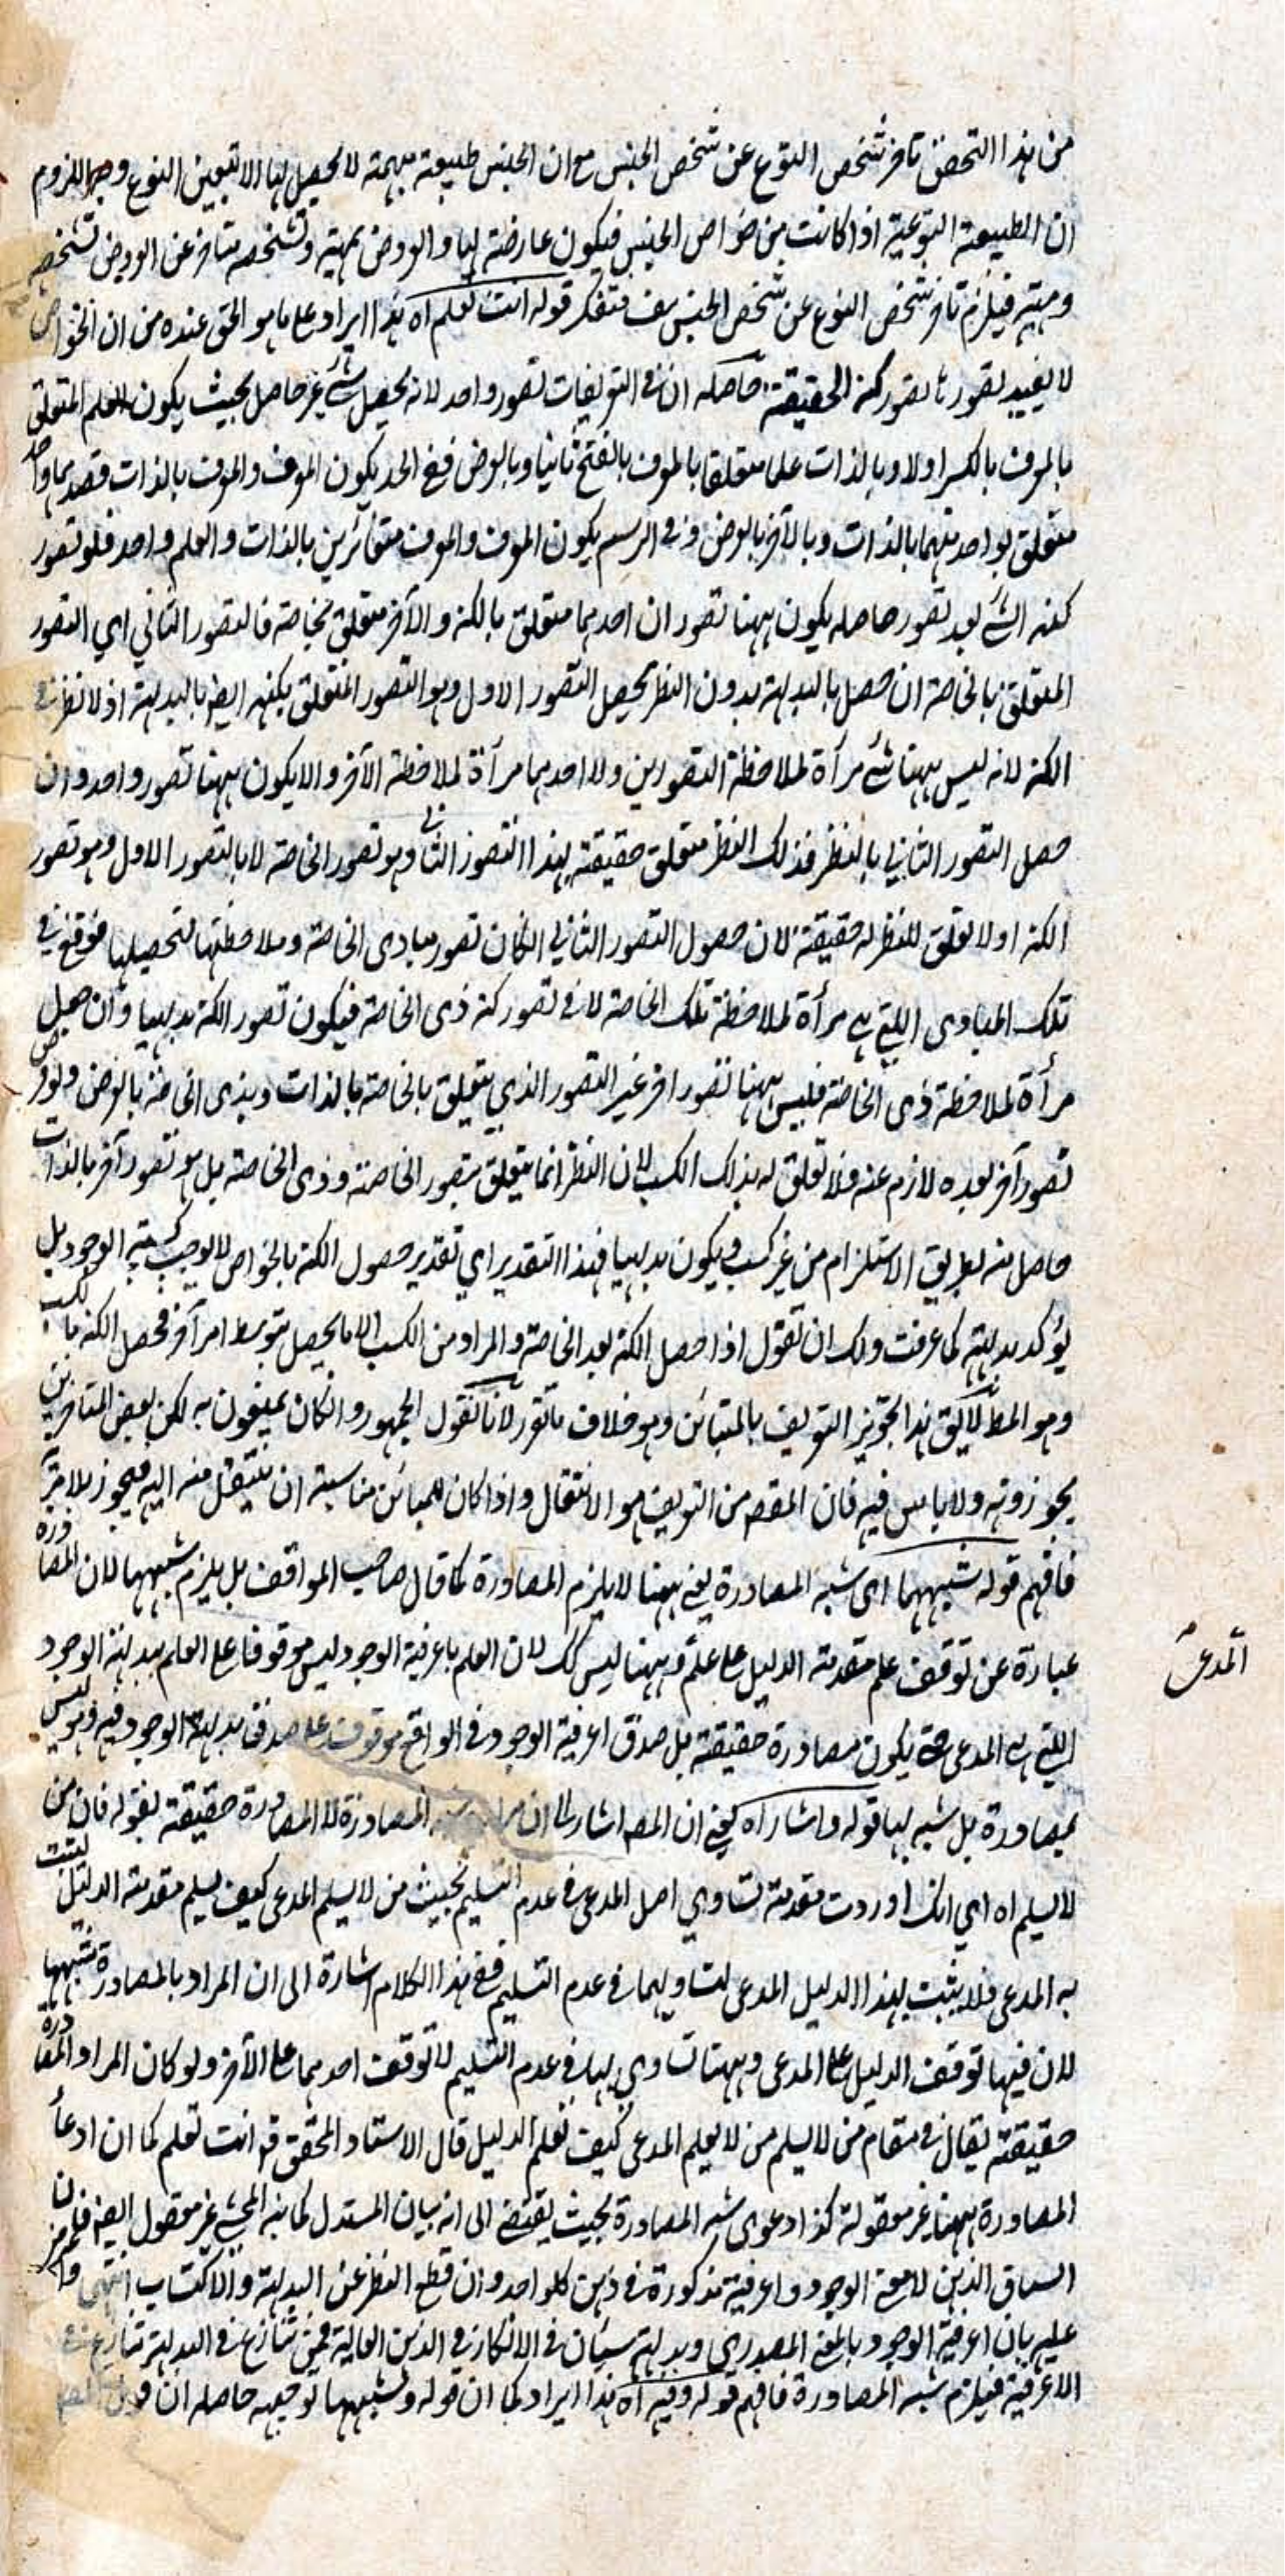 من هذا التحضن تاخر تشخص النوع عن تشخص الجنس مع ان الجنس طبيعة مبهمة لا تحصل لها الا بتعين النوع وجه اللزوم
ان الطبيعة النوعية اذا كانت من خواص الجنس فيكون عارضة لها والعروض بمهية وتشخصه متاخر عن العروض تشخصه
ومهيته فيلزم تاخر تشخص النوع عن تشخص الجنس هف فتفكر قوله انت تعلم اه هذا ايراد على ما هو الحق عنده من ان الخواص
لا يفيد تصورها تصور كنه الحقيقة حاصله ان في التعريفات تصور واحد لانه يحصل شئ غير حاصل بحيث يكون العلم المتعلق
بالمعرف بالكسر اولا وبالذات علما متعلقا بالمعرف بالفتح ثانيا وبالعرض ففي الحد يكون المعرف والمعرف بالذات قصديما واحد
متعلق بواحد منهما بالذات وبالآخر بالعرض وفي الرسم يكون المعرف والمعرف متغائرين بالذات والعلم واحد فلو تصور
كنه الشئ بعد تصور حاصله يكون ههنا تصور ان احدهما متعلق بالكنه والآخر متعلق بخاصة فالتصور الثاني اي التصور
المتعلق بالخاصة ان حصل بالبديهة بدون النظر يحصل التصور الاول وهو التصور المتعلق بكنهه ايضا بالبديهة اذ لا نظر في
الكنه لانه ليس ههنا شئ مرآة لملاحظة التصورين ولا احدهما مرآة لملاحظة الآخر والا يكون ههنا تصور واحد وان
حصل التصور الثاني بالنظر فذلك النظر متعلق حقيقة بهذا التصور الثاني وهو تصور الخاصة لا بالتصور الاول وهو تصور
الكنه اولا تعلق للنظر له حقيقة لان حصول التصور الثاني الكان تصور مبادى الخاصة وملاحظتها لتحصيلها فوقع في
تلك المبادى اللتي هي مرآة لملاحظة تلك الخاصة لا في تصور كنه ذى الخاصة فيكون تصور الكنه بديهيا وان جعل
مرآة لملاحظة ذى الخاصة فليس ههنا تصور اخر غير التصور الذي يتعلق بالخاصة بالذات وبذى الخاصة بالعرض ولو فرض
تصور آخر بعده لازم عنه فلا تعلق له بذلك الكسب لان النظر انما يتعلق بتصور الخاصة وذى الخاصة بل هو تصور آخر بالذات
حاصل منه بطريق الاستلزام من غير كسب فيكون بديهيا فهذا التقدير اي تقدير حصول الكنه بالخواص لا يوجب كسبية الوجود بل
يؤكد بديهيته كما عرفت ولك ان تقول اذا حصل الكنه بعد الخاصة والمراد من الكسب الا ما يحصل بتوسط امر آخر فحصل الكنه بالكسب
وهو المط لا يق هذا تجويز التعريف بالمتبائن وهو خلاف ما تقرر لانا نقول الجمهور وانكان يمنعون به لكن بعض المتاخرين
يجوزونه ولا باس فيه فان المقصم من التعريف هو الانتقال واذا كان للمبائن مناسبة ان ينتقل منه اليه فيجوز بلا مرية
فافهم قوله شبهها اى شبه المصادرة يعني ههنا لا يلزم المصادرة كما قال صاحب المواقف بل يلزم شبهها لان المصادرة
عبارة عن توقف علم مقدمة الدليل على علم المدعى وههنا ليس كك لان العلم باعرفية الوجود ليس موقوفا على العلم ببديهية الوجود
اللتي هي المدعى حتى يكون مصادرة حقيقة بل صدق اعرفية الوجود في الواقع موقوف على صدق بديهة الوجود فيه وهو ليس
بمصادرة بل شبه لها قوله واشار اه يعني ان المصه اشار الى ان المصادرة لا المصادرة حقيقة بقوله فان من
لا يسلم اه اي انك اوردت مقدمة تساوي اصل المدعى في عدم التسليم بحيث من لا يسلم المدعى كيف يسلم مقدمة الدليل ليثبت
به المدعى فلا يثبت بهذا الدليل المدعى لتساويهما في عدم التسليم ففي هذا الكلام اشارة الى ان المراد بالمصادرة شبهها
لان فيها توقف الدليل على المدعى وههنا تساوي لها في عدم التسليم لا توقف احدهما على الآخر ولو كان المراد المصادرة
حقيقة يقال في مقام من لا يسلم من لا يعلم المدعى كيف تعلم الدليل قال الاستاد المحقق قه انت تعلم كما ان ادعاء
المصادرة ههنا غير معقولة كذا دعوى شبه المصادرة بحيث يقتضي الى انه بيان المستدل كما نبه المحشي غير معقول ايضا فلم
السباق الذهن لا معنى الوجود واعرفية مذكورة في ذهن كلواحد وان قطع النظر عن البديهة والاكتساب انتهى
عليه بان اعرفية الوجود بالمعنى المصدري وبديهته سيئان في الانكار في الذهن العالية فمن تنازع في البديهة تنازع في
الاعرفية فيلزم شبه المصادرة فافهم قوله وفيه اه هذا ايراد كما ان قوله وشبهها توجيهه حاصله ان قول المصه